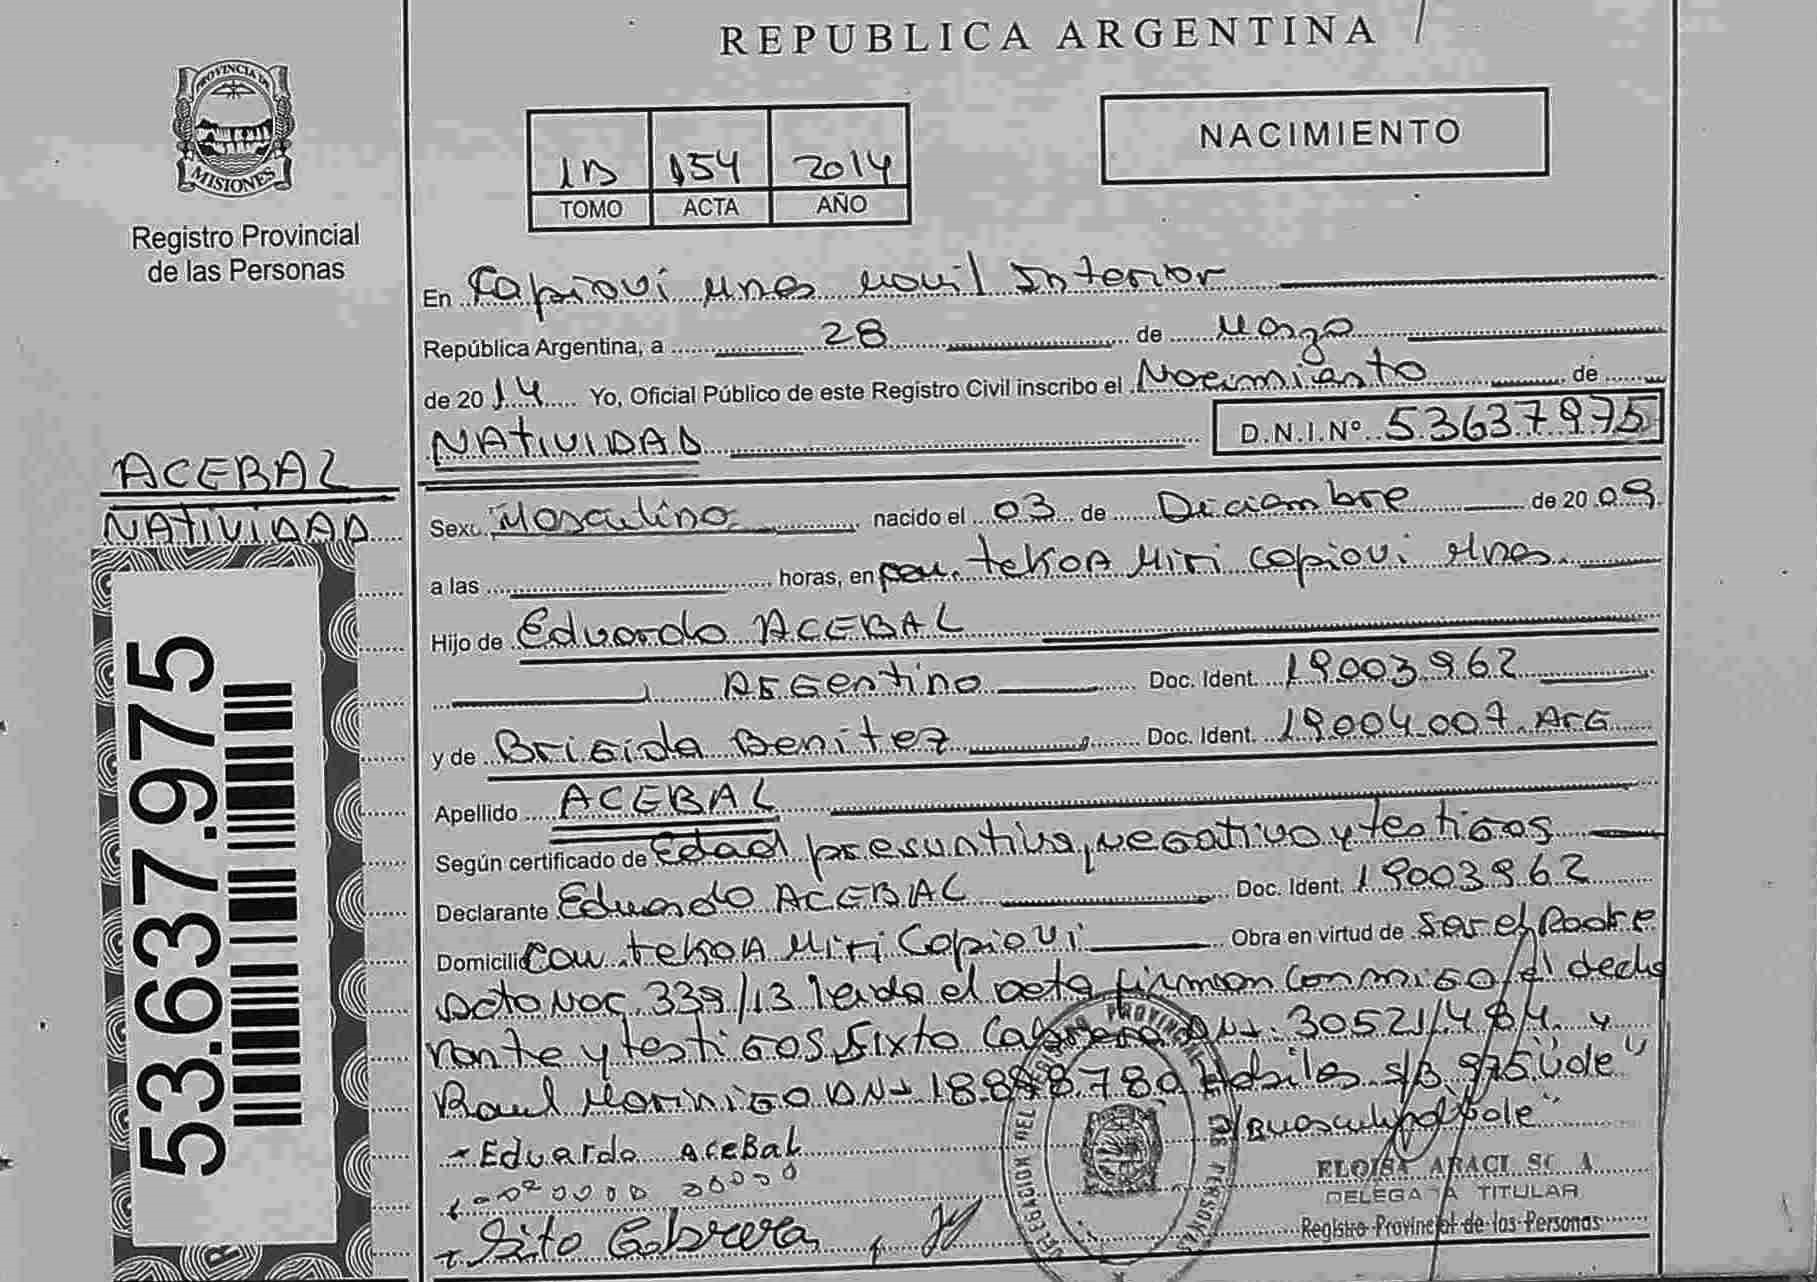 REPUBLICA ARGENTINA
PROVINCIA DE
MISIONES
Registro Provincial
de las Personas
154 2014
TOMO ACTA AÑO
NACIMIENTO
En Capioví Mnes Movil Interior
República Argentina, a 28 de Marzo
de 2014 Yo, Oficial Público de este Registro Civil inscribo el Nacimiento de
NATIVIDAD D.N.I.Nº 53637975
ACEBAL
NATIVIDAD
Sexo Masculino nacido el 03 de Diciembre de 2009
a las horas, en tekoA Miri Capiovi Mnes.
Hijo de Eduardo ACEBAL
Argentino Doc. Ident. 19003962
y de Brigida Benitez Doc. Ident. 19004.007. Arg
Apellido ACEBAL
Según certificado de Edad presuntiva, negativo y testigos
Declarante Eduardo ACEBAL Doc. Ident. 19003962
Domicilio tekoA Miri Capiovi Obra en virtud de Ser el Padre
339/13 leida el acta firman conmigo el decla
rante y testigos Sixto Cabrera DNI. 30521484 y
Raul Morinigo DNI Habiles s/b 975 "vde"
Eduardo Acebal
Sito Cabrera
ELOISA ARACI
DELEGADA TITULAR
Registro Provincial de las Personas
53.637.975